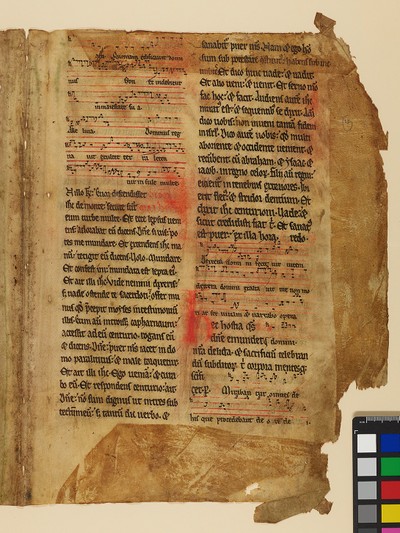 nus syon et videbitur
in maiestate sua.
Alle luia. Dominus reg
In illo tempore Cum descendisset
ihesus de monte: secute sunt
eum turbe multe. Et ecce leprosus veni
ens adorabat eum dicens. Domine si vis po
tes me mundare. Et extendens ihesus ma
num: tetigit eum dicens. Volo. Mundare.
Et confestim mundata est lepra eius.
Et ait illi ihesus. Vide nemini dixeris.
sed vade ostende te sacerdoti: offer mu
nus quod precepit moyses in testimonium
illis. Cum autem introisset capharnaum:
accessit ad eum centurio: rogans eum
et dicens. Domine puer meus iacet in do
mo paraliticus: et male torquetur.
Et ait illi ihesus. Ego veniam et cura
bo eum. Et respondens centurio: ait.
Domine non sum dignus ut intres sub
tectum meum: sed tantum dic verbo. et
sanabitur puer meus. Nam et ego homo
sum sub potestate
milites. Et dico huic vade: et vadit.
Et alio veni: et venit. Et servo meo
fac hoc: et facit. Audiens autem ihesus
miratus est: et sequentibus se dixit. Amen
dico vobis: non inveni tantam fidem
in israel. Dico autem vobis: quod multi ab
oriente et occidente venient: et
recumbent cum abraham et ysaac et
iacob: in regno celorum. filii autem regni
eicientur in tenebras exteriores. Ibi
erit fletus et stridor dentium. Et
dixit ihesus centurioni. Vade: et
sicut credidisti fiat tibi. Et sanatus
est puer: ex illa hora. Credo.
Dextera domini fecit virtutem
dextera domini exalta vit me non mo
riar sed vivam et narrabo opera
Hec hostia quesumus
domine emundet
nostra delicta. et sacrificium celebran
dum subditorum tibi corpora mentesque
Mirabantur omnes de
his que procedebant de ore de i.